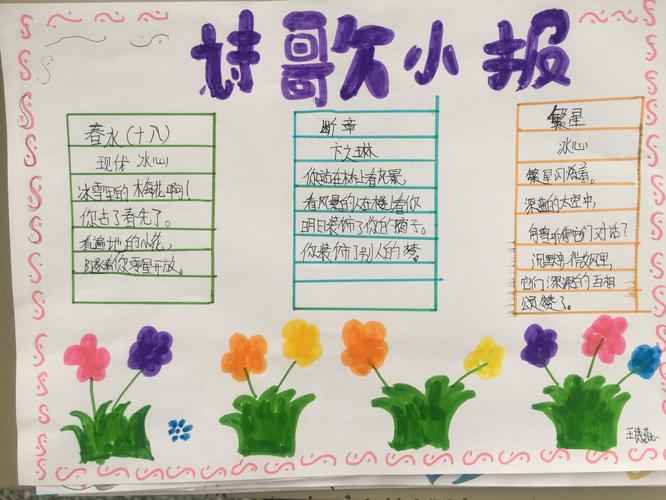 诗歌小报
春水(十八)
现代 冰心
冰雪里的梅花啊!
你占了春先了。
看遍地的小花,
随着你零星开放。
断章
卞之琳
你站在桥上看风景,
看风景的人在楼上看你
明月装饰了你的窗子。
你装饰了别人的梦。
繁星
冰心
繁星闪烁着。
深蓝的太空中,
何曾听得它们对话?
沉默中,微光里,
它们深深的互相
颂赞了。